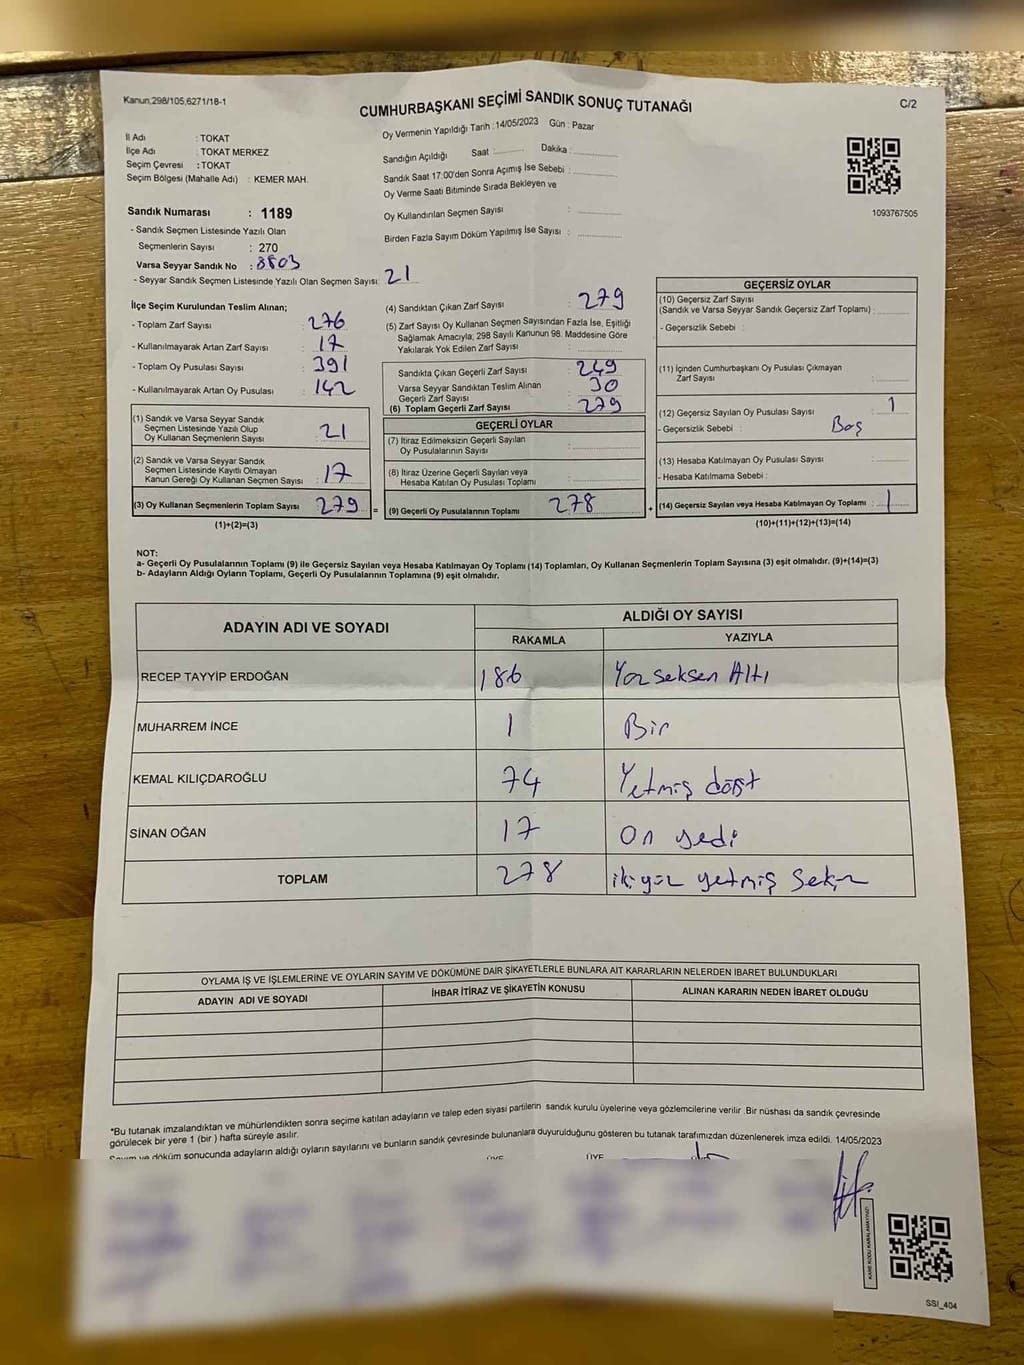 Kanun;298/105,6271/18-1
CUMHURBAŞKANI SEÇİMİ SANDIK SONUÇ TUTANAĞI
C/2
İl Adı : TOKAT
İlçe Adı : TOKAT MERKEZ
Seçim Çevresi : TOKAT
Seçim Bölgesi (Mahalle Adı) : KEMER MAH.
Oy Vermenin Yapıldığı Tarih : 14/05/2023 Gün : Pazar
Sandığın Açıldığı Saat : Dakika :
Sandık Saat 17:00'den Sonra Açımış İse Sebebi :
Oy Verme Saati Bitiminde Sırada Bekleyen ve
Oy Kullandırılan Seçmen Sayısı :
Birden Fazla Sayım Döküm Yapılmış İse Sayısı :
1093767505
Sandık Numarası : 1189
- Sandık Seçmen Listesinde Yazılı Olan
Seçmenlerin Sayısı : 270
Varsa Seyyar Sandık No : 8803
- Seyyar Sandık Seçmen Listesinde Yazılı Olan Seçmen Sayısı: 21
İlçe Seçim Kurulundan Teslim Alınan;
- Toplam Zarf Sayısı : 276
- Kullanılmayarak Artan Zarf Sayısı : 17
- Toplam Oy Pusulası Sayısı : 391
- Kullanılmayarak Artan Oy Pusulası : 142
(1) Sandık ve Varsa Seyyar Sandık
Seçmen Listesinde Yazılı Olup
Oy Kullanan Seçmenlerin Sayısı : 21
(2) Sandık ve Varsa Seyyar Sandık
Seçmen Listesinde Kayıtlı Olmayan
Kanun Gereği Oy Kullanan Seçmen Sayısı : 17
(3) Oy Kullanan Seçmenlerin Toplam Sayısı : 279 =
(1)+(2)=(3)
(4) Sandıktan Çıkan Zarf Sayısı : 279
(5) Zarf Sayısı Oy Kullanan Seçmen Sayısından Fazla İse, Eşitliği
Sağlamak Amacıyla; 298 Sayılı Kanunun 98. Maddesine Göre
Yakılarak Yok Edilen Zarf Sayısı :
Sandıkta Çıkan Geçerli Zarf Sayısı : 249
Varsa Seyyar Sandıktan Teslim Alınan
Geçerli Zarf Sayısı : 30
(6) Toplam Geçerli Zarf Sayısı : 279
GEÇERLİ OYLAR
(7) İtiraz Edilmeksizin Geçerli Sayılan
Oy Pusulalarının Sayısı :
(8) İtiraz Üzerine Geçerli Sayılan veya
Hesaba Katılan Oy Pusulası Toplamı :
(9) Geçerli Oy Pusulalarının Toplamı : 278 +
GEÇERSİZ OYLAR
(10) Geçersiz Zarf Sayısı
(Sandık ve Varsa Seyyar Sandık Geçersiz Zarf Toplamı) :
- Geçersizlik Sebebi :
(11) İçinden Cumhurbaşkanı Oy Pusulası Çıkmayan
Zarf Sayısı :
(12) Geçersiz Sayılan Oy Pusulası Sayısı : 1
- Geçersizlik Sebebi : Boş
(13) Hesaba Katılmayan Oy Pusulası Sayısı :
- Hesaba Katılmama Sebebi :
(14) Geçersiz Sayılan veya Hesaba Katılmayan Oy Toplamı : 1
(10)+(11)+(12)+(13)=(14)
NOT:
a- Geçerli Oy Pusulalarının Toplamı (9) ile Geçersiz Sayılan veya Hesaba Katılmayan Oy Toplamı (14) Toplamları, Oy Kullanan Seçmenlerin Toplam Sayısına (3) eşit olmalıdır. (9)+(14)=(3)
b- Adayların Aldığı Oyların Toplamı, Geçerli Oy Pusulalarının Toplamına (9) eşit olmalıdır.
ADAYIN ADI VE SOYADI
ALDIĞI OY SAYISI
RAKAMLA YAZIYLA
RECEP TAYYİP ERDOĞAN 186 Yüz seksen Altı
MUHARREM İNCE 1 Bir
KEMAL KILIÇDAROĞLU 74 Yetmiş dört
SİNAN OĞAN 17 On yedi
TOPLAM 278 iki yüz yetmiş sekiz
OYLAMA İŞ VE İŞLEMLERİNE VE OYLARIN SAYIM VE DÖKÜMÜNE DAİR ŞİKAYETLERLE BUNLARA AİT KARARLARIN NELERDEN İBARET BULUNDUKLARI
ADAYIN ADI VE SOYADI İHBAR İTİRAZ VE ŞİKAYETİN KONUSU ALINAN KARARIN NEDEN İBARET OLDUĞU
*Bu tutanak imzalandıktan ve mühürlendikten sonra seçime katılan adayların ve talep eden siyasi partilerin sandık kurulu üyelerine veya gözlemcilerine verilir .Bir nüshası da sandık çevresinde
görülecek bir yere 1 (bir ) hafta süreyle asılır.
Sayım ve döküm sonucunda adayların aldığı oyların sayılarını ve bunların sandık çevresinde bulunanlara duyurulduğunu gösteren bu tutanak tarafımızdan düzenlenerek imza edildi. 14/05/2023
ÜYE ÜYE
KARE KODU KARALAMAYINIZ!
SSI_404